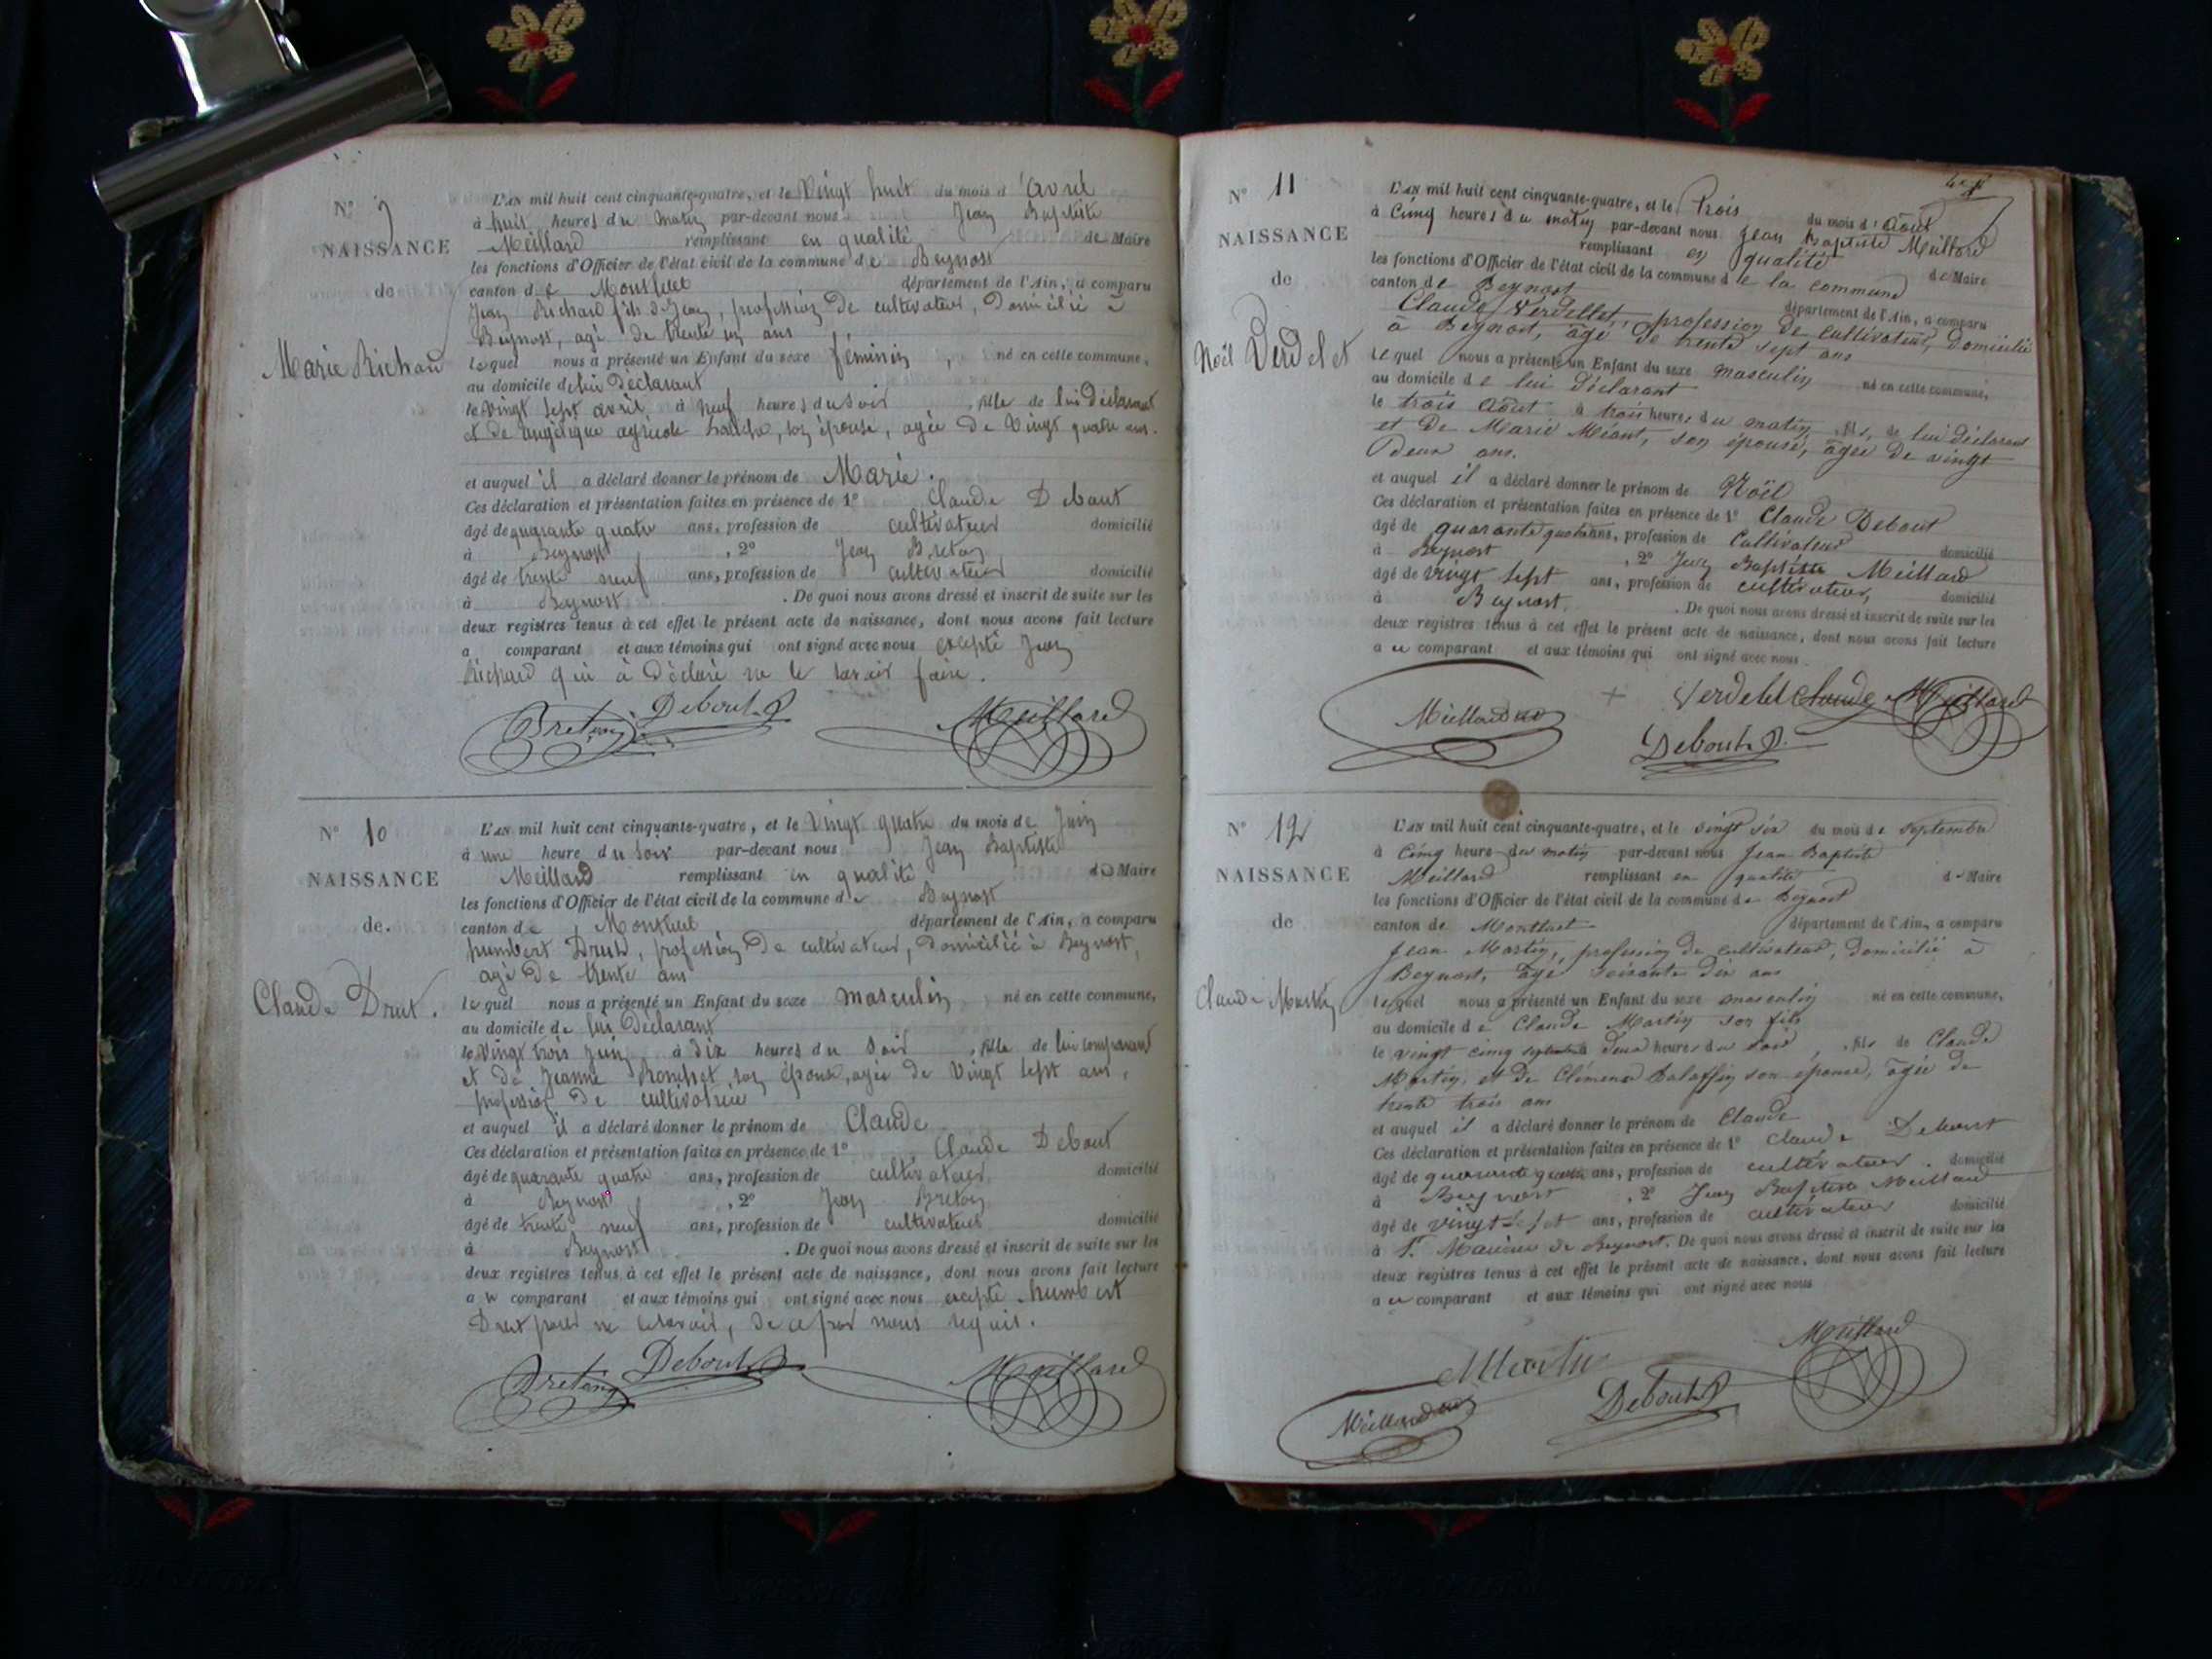 N° 9
NAISSANCE
de
Marie Richard
L'AN mil huit cent cinquante-quatre, et le Vingt huit du mois d'Avril
à huit heures du matin par-devant nous Jean Baptiste
Meillard remplissant en qualité de Maire
les fonctions d'Officier de l'état civil de la commune de Beynost
canton de Montluel département de l'Ain, a comparu
Jean Richard fils de Jean, profession de cultivateur, Domicilié à
Beynost, agé de trente un ans
lequel nous a présenté un Enfant du sexe féminin, né en cette commune,
au domicile de lui Déclarant
le Vingt sept avril à neuf heures du soir, fille de lui Déclarant
et de angélique agricole son épouse, agée de Vingt quatre ans.
et auquel il a déclaré donner le prénom de Marie.
Ces déclaration et présentation faites en présence de 1° Claude Debout
âgé de quarante quatre ans, profession de cultivateur domicilié
à Beynost, 2° Jean Breton
âgé de trente neuf ans, profession de cultivateur domicilié
à Beynost. De quoi nous avons dressé et inscrit de suite sur les
deux registres tenus à cet effet le présent acte de naissance, dont nous avons fait lecture
a comparant et aux témoins qui ont signé avec nous excepté Jean
Richard qui à Déclaré ne le savoir faire.
Breton Debout Meillard
N° 10
NAISSANCE
de.
Claude Drut.
L'AN mil huit cent cinquante-quatre, et le Vingt quatre du mois de Juin
à une heure du soir par-devant nous Jean Baptiste
Meillard remplissant en qualité de Maire
les fonctions d'Officier de l'état civil de la commune de Beynost
canton de Montluel département de l'Ain, a comparu
humbert Drut, profession De cultivateur, Domicilié à Beynost,
agé De trente ans
lequel nous a présenté un Enfant du sexe masculin né en cette commune,
au domicile de lui Déclarant
le Vingt trois juin à dix heures du soir, fille de lui comparant
et de Jeanne son épouse, agée de Vingt sept ans,
profession De cultivatrice
et auquel il a déclaré donner le prénom de Claude
Ces déclaration et présentation faites en présence de 1° Claude Debout
âgé de quarante quatre ans, profession de cultivateur domicilié
à Beynost, 2° Jean Breton
âgé de trente neuf ans, profession de cultivateur domicilié
à Beynost. De quoi nous avons dressé et inscrit de suite sur les
deux registres tenus à cet effet le présent acte de naissance, dont nous avons fait lecture
a comparant et aux témoins qui ont signé avec nous excepté humbert
Drut pour ne le savoir, de ce par nous requis.
Breton Debout Meillard
N° 11
NAISSANCE
de
Noël Verdelet
L'AN mil huit cent cinquante-quatre, et le trois du mois d'Août
à Cinq heures du matin par-devant nous Jean baptiste Meillard
remplissant en qualité de Maire
les fonctions d'Officier de l'état civil de la commune de la commune
canton de Beynost département de l'Ain, a comparu
Claude Verdellet profession de Cultivateur, Domicilié
à Beynost, âgé De trente sept ans
lequel nous a présenté un Enfant du sexe masculin né en cette commune,
au domicile de lui Déclarant
le trois Août à trois heures du matin, fils, de lui Déclarant
et De Marie Méant, son épouse, âgée De vingt
deux ans.
et auquel il a déclaré donner le prénom de Noël
Ces déclaration et présentation faites en présence de 1° Claude Debout
âgé de quarante quatre ans, profession de Cultivateur domicilié
à Beynost, 2° Jean Baptiste Meillard
âgé de vingt sept ans, profession de cultivateur, domicilié
à Beynost. De quoi nous avons dressé et inscrit de suite sur les
deux registres tenus à cet effet le présent acte de naissance, dont nous avons fait lecture
a ce comparant et aux témoins qui ont signé avec nous.
Meillard Verdelet Claude Meillard
Debout
N° 12
NAISSANCE
de
Claude Martin
L'AN mil huit cent cinquante-quatre, et le vingt six du mois de septembre
à Cinq heure du matin par-devant nous Jean Baptiste
Meillard remplissant en qualité de Maire
les fonctions d'Officier de l'état civil de la commune de Beynost
canton de Montluel département de l'Ain, a comparu
Jean Martin, profession de cultivateur, domicilié à
Beynost, âgé soixante dix ans
lequel nous a présenté un Enfant du sexe masculin né en cette commune,
au domicile de Claude Martin son fils
le vingt cinq septembre à deux heures du soir, fils de Claude
Martin, et De Clémence son épouse, âgée de
trente trois ans
et auquel il a déclaré donner le prénom de Claude
Ces déclaration et présentation faites en présence de 1° Claude Debout
âgé de quarante quatre ans, profession de cultivateur domicilié
à Beynost, 2° Jean Baptiste Meillard
âgé de vingt sept ans, profession de cultivateur domicilié
à St. Maurice de Beynost. De quoi nous avons dressé et inscrit de suite sur les
deux registres tenus à cet effet le présent acte de naissance, dont nous avons fait lecture
a ce comparant et aux témoins qui ont signé avec nous
Martin Meillard
Meillard Debout